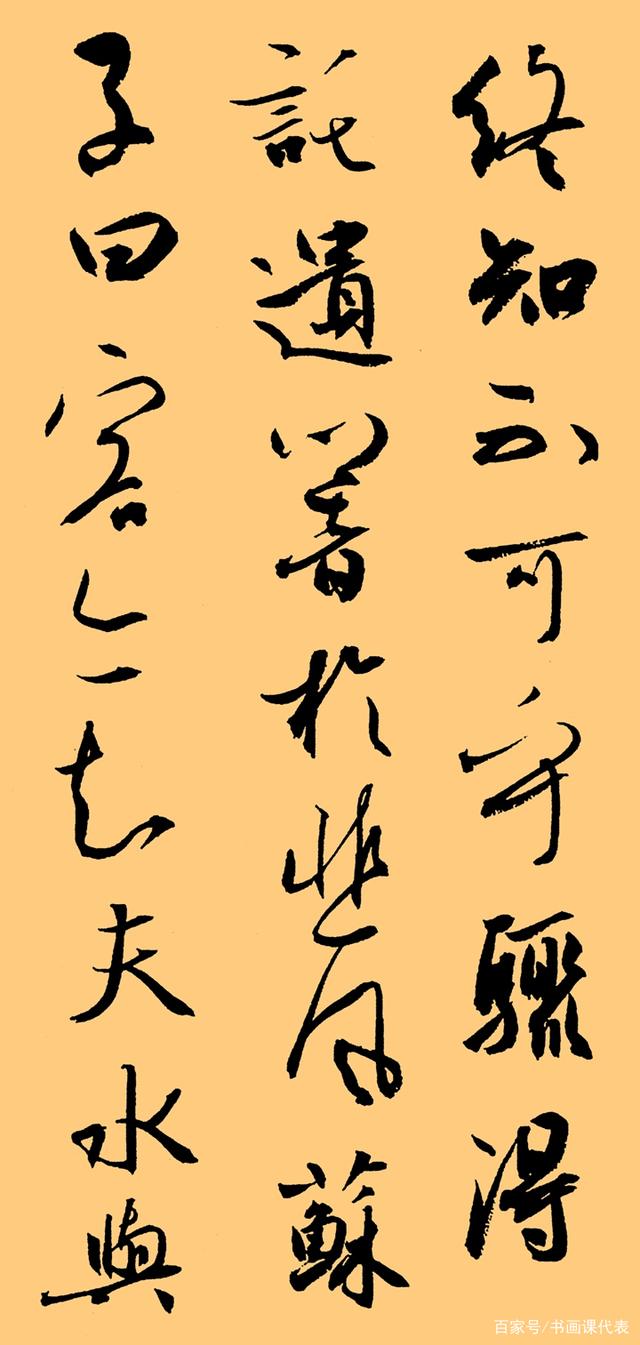 終知不可乎驟得
託遺響於悲風蘇
子曰客亦知夫水與
百家号/书画课代表